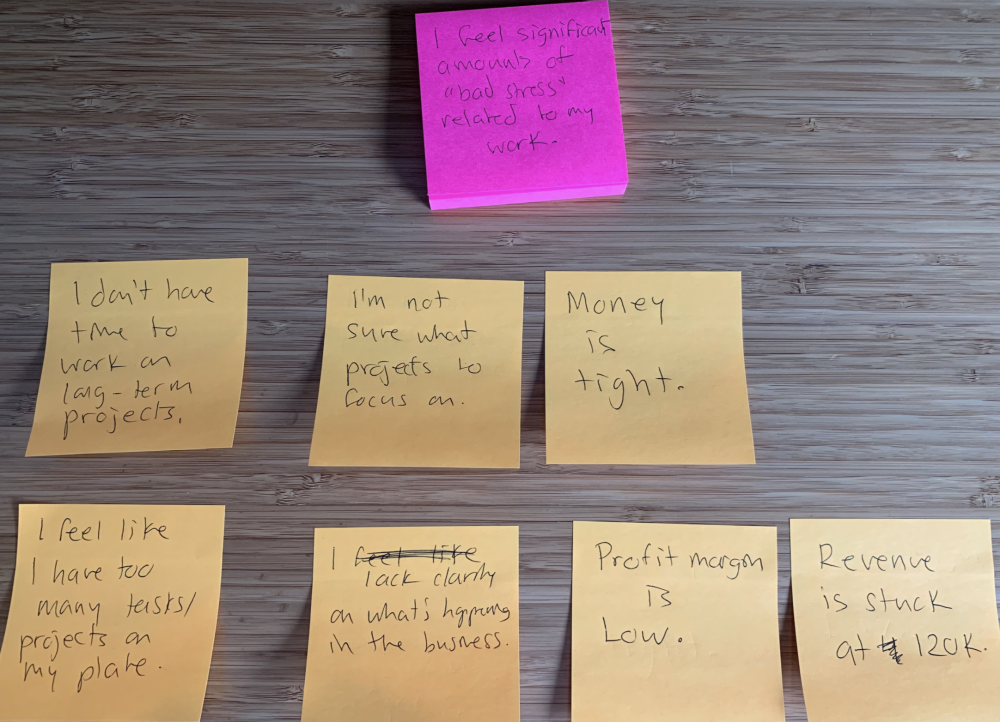 I feel significant
amounts of
"bad stress"
related to my
work.
I don't have
time to
work on
long-term
projects.
I'm not
sure what
projects to
focus on.
Money
is
tight.
I feel like
I have too
many tasks/
projects on
my plate.
I feel like
lack clarity
on what's happening
in the business.
Profit margin
is
Low.
Revenue
is stuck
at 120K.